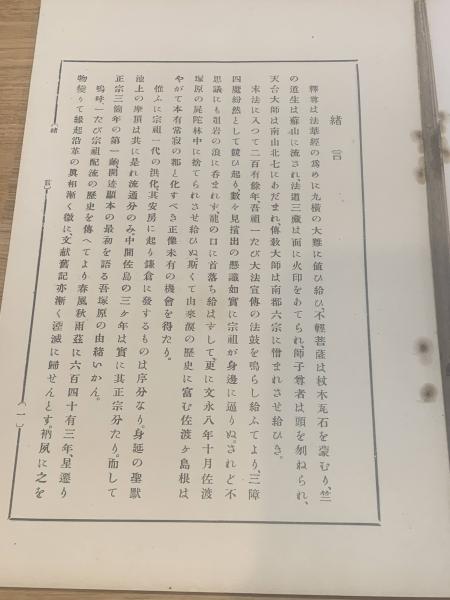 緒言
釋尊は法華經の爲めに九橫の大難に値ひ給ひ、不輕菩薩は杖木瓦石を蒙むり、竺
の道生は蘇山に流され、法道三藏は面に火印をあてられ、師子尊者は頭を刎ねられ、
天台大師は南三北七にあだまれ、傳敎大師は南都六宗に憎まれさせ給ひき。
末法に入つて二百有餘年、吾祖一たび大法宣傳の法鼓を鳴らし給ふてより、三障
四魔紛然として競ひ起り、數々見擯出の懸讖如實に宗祖が身邊に逼りぬ。されど不
思議にも俎岩の浪に呑まれず、龍の口に首落ち給はずして、更に文永八年十月佐渡
塚原の屍陀林中に捨てられさせ給ひぬ。斯くて由來淚の歷史に富む佐渡ヶ島根は
やがて本有常寂の都と化すべき正像未有の機會を得たり。
惟ふに宗祖一代の洪化、其安房に起り鎌倉に發するものは序分なり。身延の墨默
池上の摩頂は共に是れ流通分のみ、中間佐島の三ヶ年は實に其正宗分たり。而して
正宗三箇年の第一齣、開迹顯本の最初を語る吾塚原の由緒いかん。
嗚呼、一たび宗祖配流の歷史を傳へてより春風秋雨茲に六百四十有三年、星遷り
物變りて緣起沿革の眞相漸く微に、文献舊記亦漸く湮滅に歸せんとす。衲夙に之を
緒言
(一)